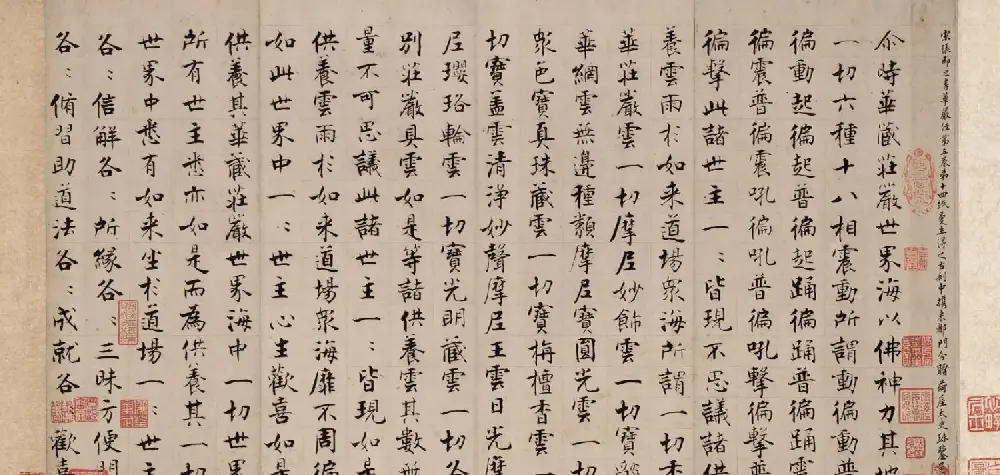 宋張即之書華嚴經第五卷第十四紙
尒時華藏莊嚴世界海以佛神力其地
一切六種十八相震動所謂動徧動普
徧動起徧起普徧起踊徧踊普徧踊震
徧震普徧震吼徧吼普徧吼擊徧擊普
徧擊此諸世主一〻皆現不思議諸供
養雲雨於如来道場衆海所謂一切香
華莊嚴雲一切摩尼妙飾雲一切寶燄
華網雲無邊種類摩尼寶圓光雲一切
衆色寶真珠藏雲一切寶栴檀香雲一
切寶盖雲清淨妙聲摩尼王雲日光摩
尼瓔珞輪雲一切寶光明藏雲一切各
別莊嚴具雲如是等諸供養雲其數無
量不可思議此諸世主一〻皆現如是
供養雲雨於如来道場衆海靡不周徧
如此世界中一〻世主心生歡喜如是
供養其華藏莊嚴世界海中一切世界
所有世主悉亦如是而為供養其一切
世界中悉有如来坐於道場一〻世主
各〻信解各〻所緣各〻三昧方便門
各〻脩習助道法各〻成就各〻歡喜